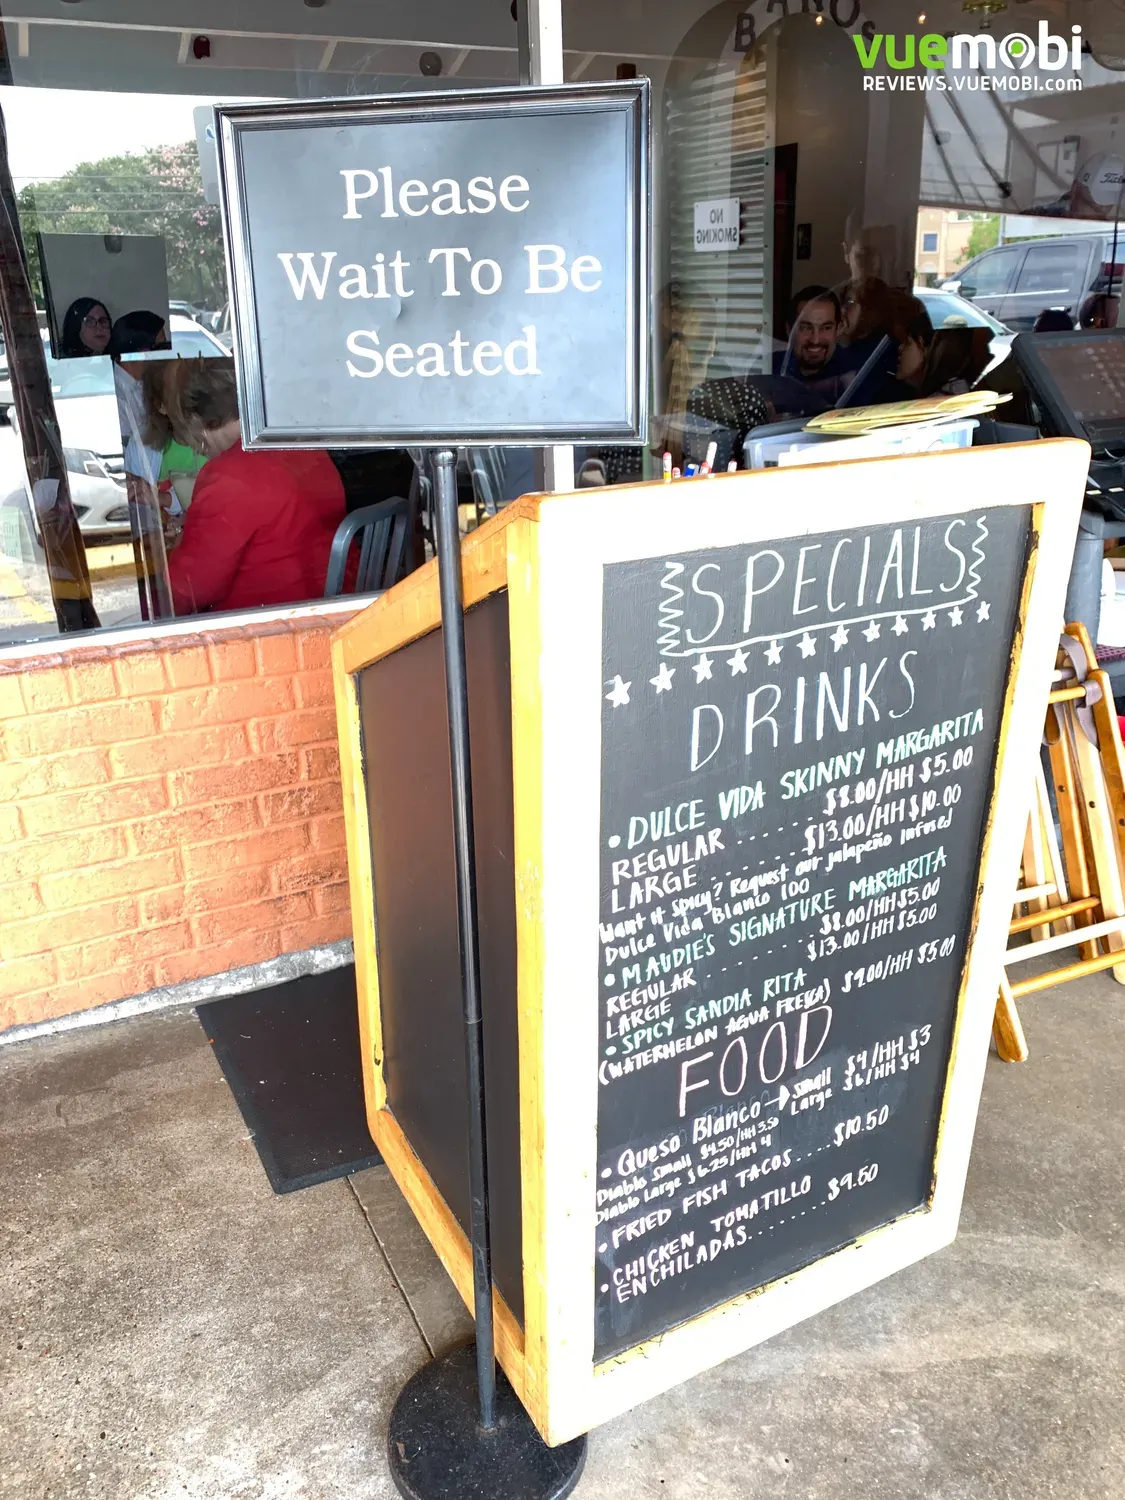 vuemobi
REVIEWS.VUEMOBI.com
BAÑOS
Please
Wait To Be
Seated
NO
SMOKING
SPECIALS
DRINKS
• DULCE VIDA SKINNY MARGARITA
REGULAR ....... $8.00/HH $5.00
LARGE ....... $13.00/HH $10.00
Want it spicy? Request our jalapeño infused
Dulce Vida Blanco 100
• MAUDIE'S SIGNATURE MARGARITA
REGULAR ....... $8.00/HH $5.00
LARGE $13.00/HH $5.00
• SPICY SANDIA RITA
(WATERMELON AGUA FRESCA) $9.00/HH $5.00
FOOD
• Queso Blanco → small $4/HH $3
Large $6/HH $4
Diablo small $4.50/HH 3.50
Diablo Large $6.25/HH 4
• FRIED FISH TACOS..... $10.50
• CHICKEN TOMATILLO
ENCHILADAS....... $9.50